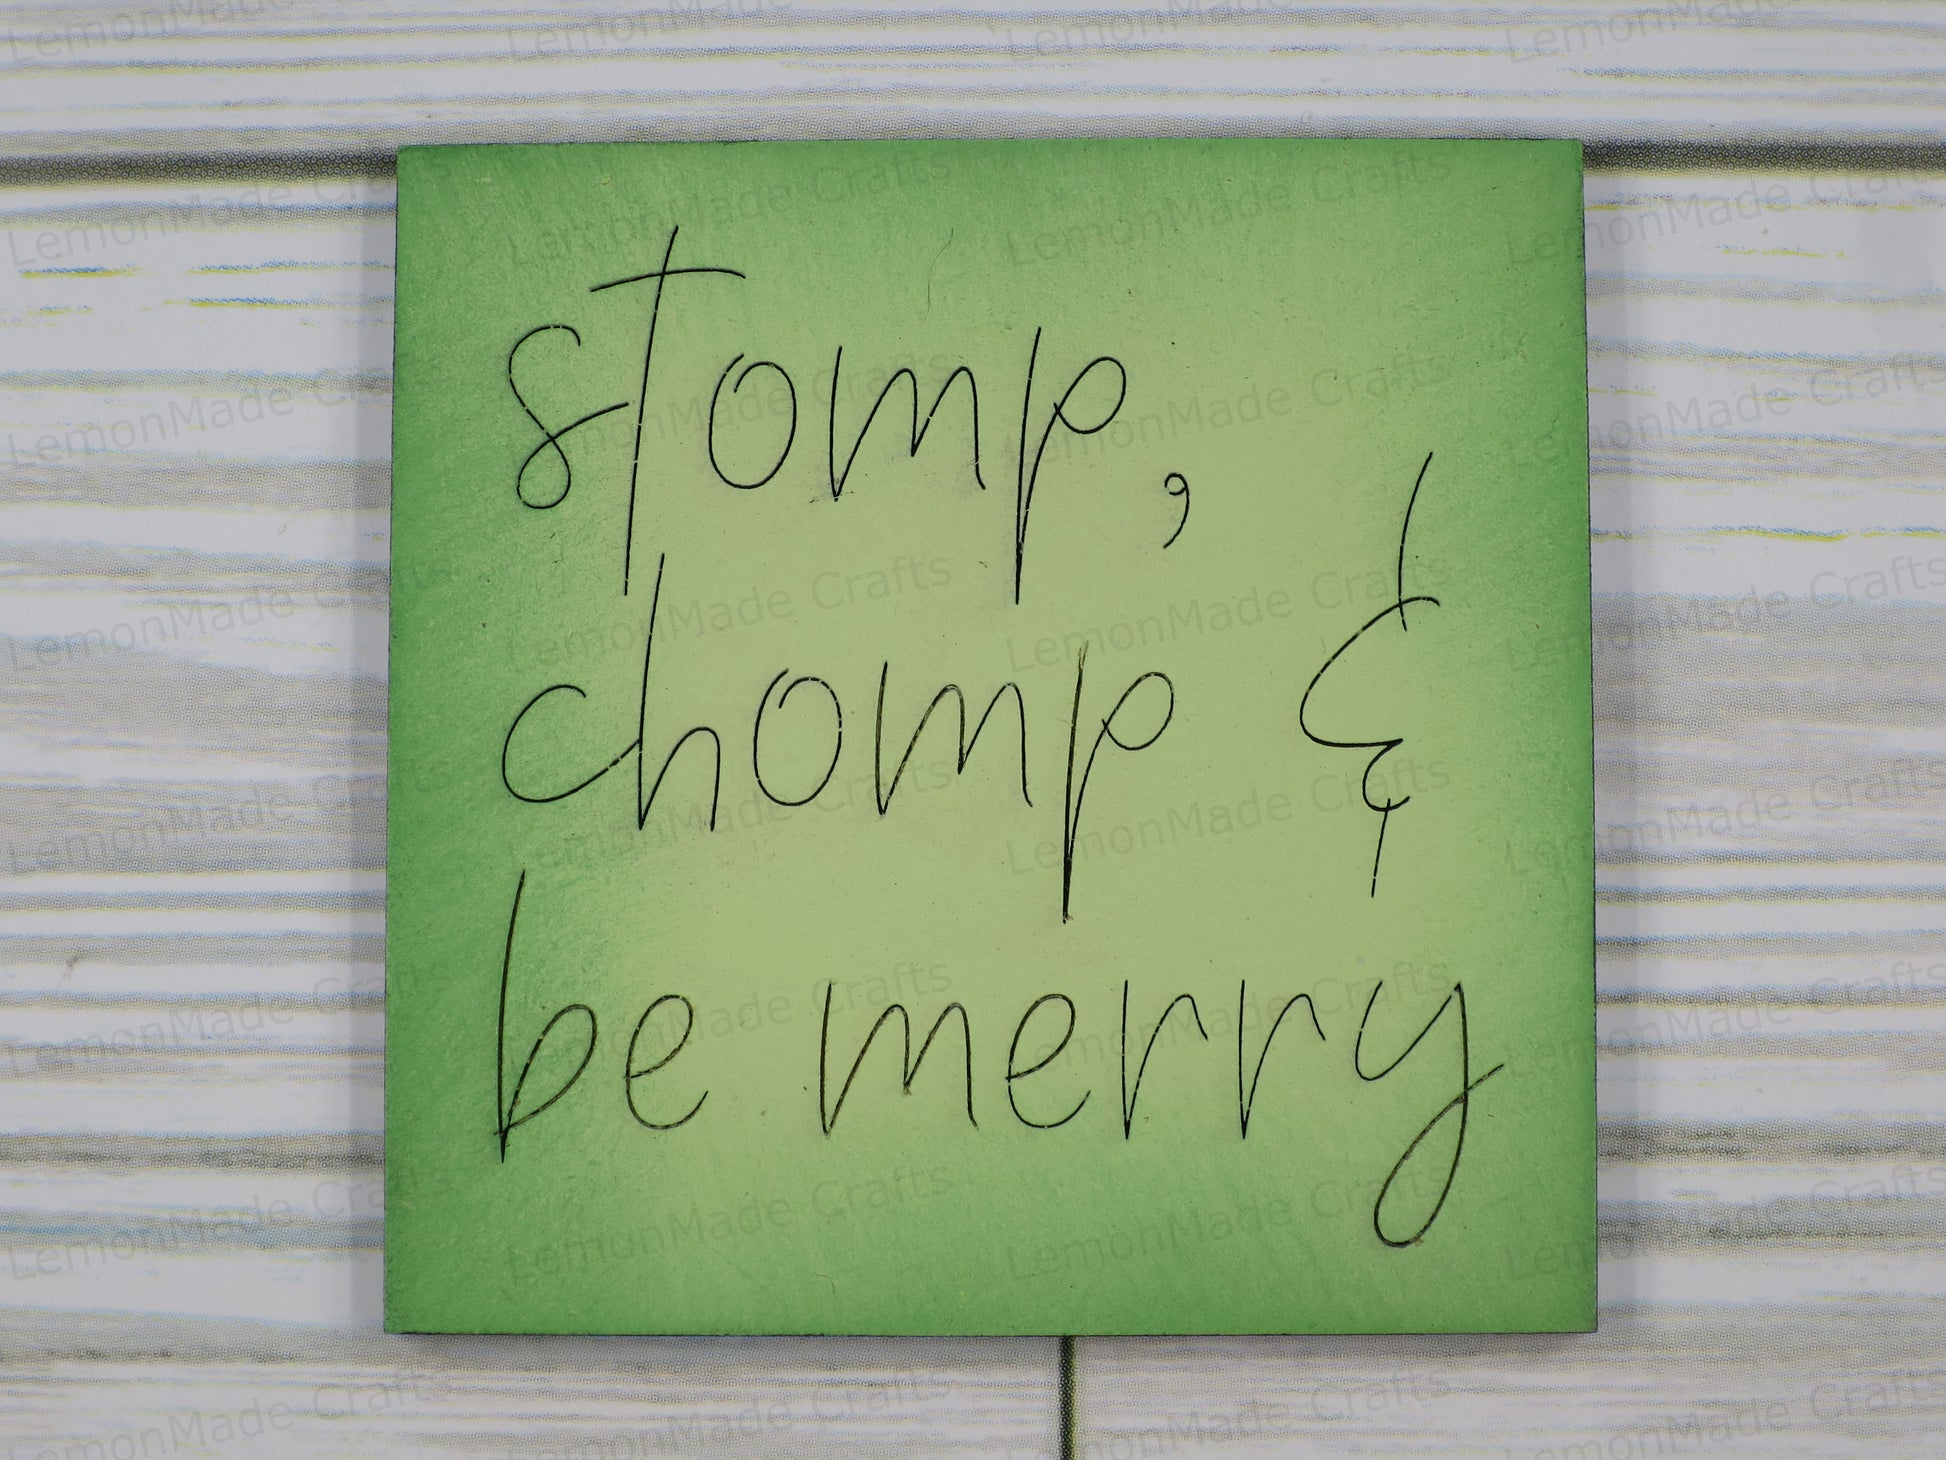 stomp,
chomp &
be merry
LemonMade Crafts